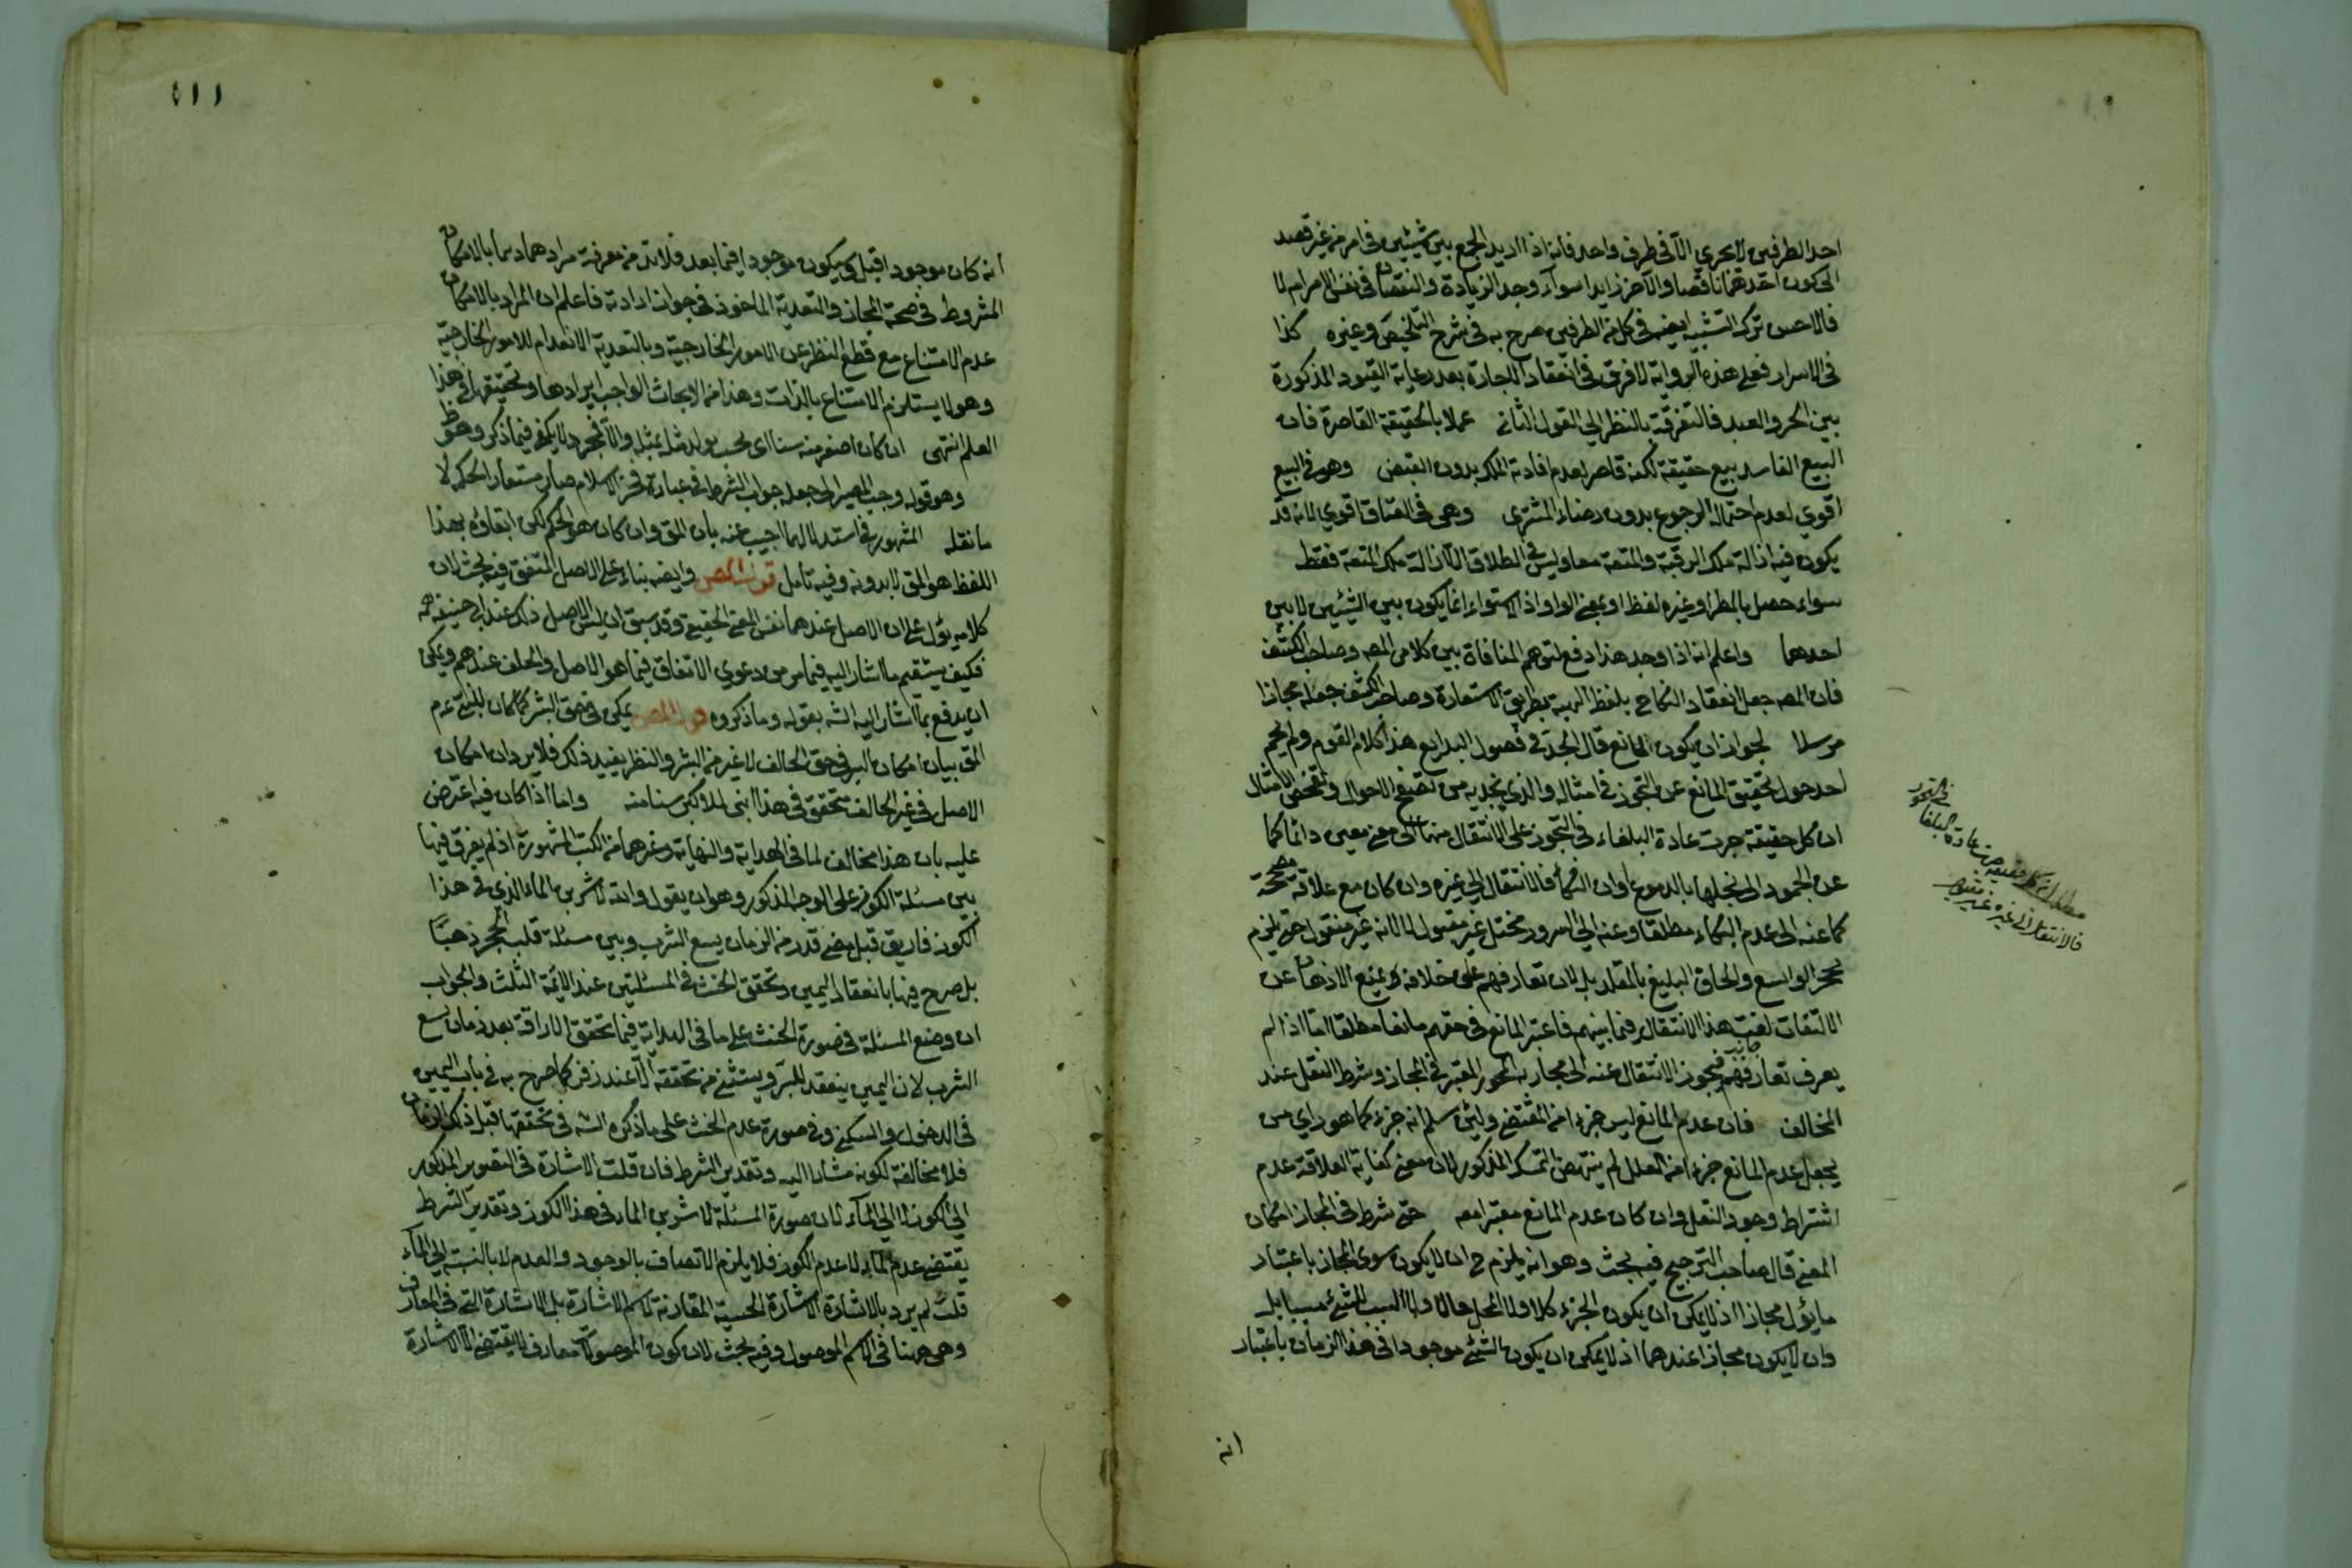 احد الطرفين لا يجري الا في طرف واحد فانه اذا اريد الجمع بين شيئين في امر من غير قصد
الى كون احدهما ناقصا والآخر زايدا سواء وجد الزيادة والنقصان في نفس الامر ام لا
فالاحسن ترك التشبيه ايضا في كل من الطرفين صرح به في شرح التلخيص وغيره كذا
في الاسرار فعلى هذه الرواية لا فرق في انعقاد الاجارة بعد رعاية القيود المذكورة
بين الحر والعبد فالتفرقة بالنظر الى القول الثاني عملا بالحقيقة القاصرة فان
البيع الفاسد بيع حقيقة لكنه قاصر لعدم افادته الملك بدون القبض وهو في البيع
اقوي لعدم احتماله الرجوع بدون رضاء المشتري وهي في العتاق اقوي لانه قد
يكون فيه ازالة ملك الرقبة والمتعة معا وليس في الطلاق الا ازالة ملك المتعة فقط
سواء حصل بالمطر او غيره لفظ او بمعنى الواو اذ الاستواء انما يكون بين الشيئين لا بين
احدهما واعلم انه اذا وجد هذا دفع لتوهم المنافاة بين كلامي المصـ وصاحب الكشف
فان المصـ جعل انعقاد النكاح بلفظ الهبة بطريق الاستعارة وصاحب الكشف جعله مجازا
مرسلا لجواز ان يكون المانع قال الجد في فصول البدايع هذا كلام القوم ولم يحم
احد حول تحقيق المانع عن التجوز في امثاله والذي يجديه من تصفح الاحوال وتفحص الامثال
ان كل حقيقة جرت عادة البلغاء في التجوز على الانتقال منها الى معنى معين دائما كما
عن الجمود الى بخلها بالدموع اوان البكاء فالانتقال الى غيره وان كان مع علاقة مصححة
كما عنه الى عدم البكاء مطلقا وعنه الى السرور مختل غير مقبول لا لانه غير منقول حتى يلزم
تحجر الواسع والحاق البليغ بالمقلد بل لان تعارفهم على خلافه يمنع الاذهان عن
الالتفات لفت هذا الانتقال فيما بينهم فاعتبر المانع في حقهم مانعا مطلقا اما اذا لم
يعرف تعارفهم فيجوز الانتقال عنه الى مجاز به المجوز المعتبر في المجاز وشرط النقل عند
المخالف فان عدم المانع ليس جزءا من المقتضي ولئن سلم انه جزء كما هو راي من
يجعل عدم المانع جزءا من العلل لم ينتهض التمسك المذكور لان معنى كفاية العلاقة عدم
اشتراط وجود النقل وان كان عدم المانع معتبرا معه حتى شرط في المجاز امكان
المعنى قال صاحب الترجيح فيه بحث وهو انه يلزم ح ان لا يكون سوى المجاز باعتبار
ما يؤل مجازا اذ لا يمكن ان يكون الجزء كلا ولا المحل حالا ولا السبب للشيء مسببا بل
وان لا يكون مجازا عندهما اذ لا يمكن ان يكون الشيء موجودا في هذا الزمان باعتبار
في التجوز
كل حقيقة جرت عادة البلغا
فالانتقال الى غيره غير مقبول
انه
٤١١
انه كان موجودا قبل او يكون موجودا فيما بعد فلا بد من معرفة مرادهما بالامكان
المشروط في صحة المجاز والتعدية الماخوذ في جواز ارادته فاعلم ان المراد بالامكان
عدم الامتناع مع قطع النظر عن الامور الخارجية وبالتعدية الانعدام للامور الخارجية
وهو لا يستلزم الامتناع بالذات وهذا من الابحاث الواجب ايرادها وتحقيقها في هذا
العلم انتهى ان كان اصغر منه سنا اى بحيث يولد مثله بمثله والا فمجرد لا يكفي فيما ذكر وهو ظ
وهو قوله وجب المصير الى جعله جواب الشرط في عبارة فخر الاسلام صار مستعارا لحكمه لا
ما نقله المشهور في استدلالهما اجيب عنه بان المق وان كان هو الحكم لكن ابتغاؤه بهذا
اللفظ هو المق لا بدونه وفيه تامل قول المصـ وايضه بناء على الاصل المتفق فيه بحث لان
كلامه يؤل على ان الاصل عندهما نفس المعنى الحقيقي وقد سبق ان ليس الاصل ذلك عند ابي حنيفة رحمه
فكيف يستقيم ما اشار اليه فيما مر من دعوى الاتفاق فيما هو الاصل والخلف عندهم ويمكن
ان يدفع بما اشار اليه الشه بقوله وما ذكروه قول المصـ يمكن في حق البشر كما كان للنبي عم
المق بيان امكان البر في حق الحالف لا غير من البشر والنظر يفيد ذلك فلا يرد ان امكان
الاصل في غير الحالف متحقق في هذا ابني للاكبر سنا منه واما اذا كان فيه اعترض
عليه بان هذا مخالف لما في الهداية والنهاية وغيرهما من الكتب المشهورة اذ لم يفرق فيها
بين مسئلة الكوز على الوجه المذكور وهو ان يقول والله لاشربن الماء الذي في هذا
الكوز فاريق قبل مضي قدر من الزمان يسع الشرب وبين مسئلة قلب الحجر ذهبا
بل صرح فيها بانعقاد اليمين وتحقق الحنث في المسئلتين عند الائمة الثلث والجواب
ان وضع المسئلة في صورة الحنث على ما في الهداية فيما تحقق الاراقة بعد زمان يسع
الشرب لان اليمين ينعقد للبر ويستثنى من تحققه الا عند زفر كما صرح به في باب اليمين
في الدخول والسكنى وفي صورة عدم الحنث على ما ذكره الشه في تحققها قبل ذلك الزمان
فلا مخالفة لكونه مشارا اليه وتقدير الشرط فان قلت الاشارة في التصوير المذكور
الى الكوز لا الى الماء لان صورة المسئلة لاشربن الماء في هذا الكوز وتقدير الشرط
يقتضي عدم الماء لا عدم الكوز فلا يلزم الاتصاف بالوجود والعدم لا بالنسبة الى الماء
قلت لم يرد بالاشارة الاشارة الحسية المقارنة لاسم الاشارة بل الاشارة التي في المعارف
وهي ههنا في الاسم الموصول وفيه بحث لان كون الموصولات معارف لا يقتضي الا الاشارة